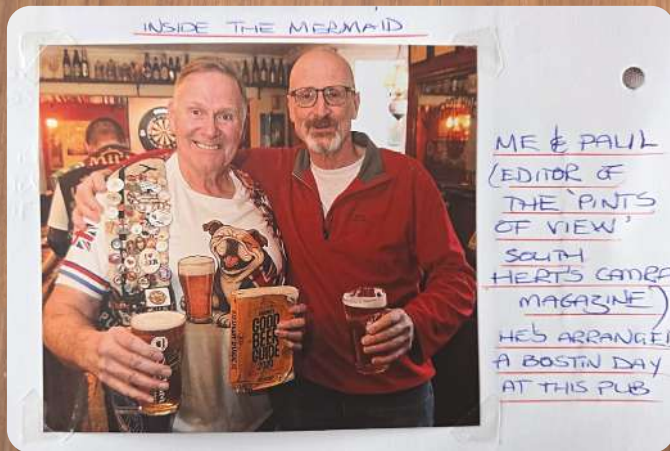 INSIDE THE MERMAID
ME & PAUL
(EDITOR OF
THE 'PINTS
OF VIEW'
SOUTH
HERT'S CAMRA
MAGAZINE)
HE'S ARRANGED
A BOSTIN DAY
AT THIS PUB
GOOD
BEER
GUIDE